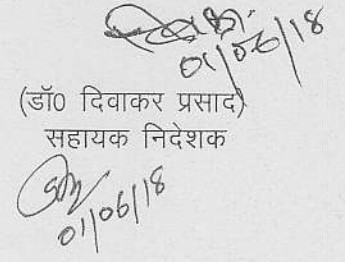 01/06/18
(डॉ0 दिवाकर प्रसाद)
सहायक निदेशक
01/06/18